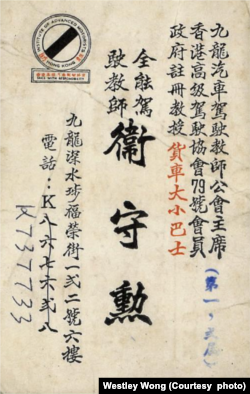 九龍汽車駕駛教師公會主席
香港高級駕駛協會79號會員
政府註冊教授貨車大小巴士
全能駕
駛教師
衞守勲
九龍深水埗福榮街一弍二號六樓
電話:K八六七六弍八
K737733
Westley Wong (Courtesy photo)